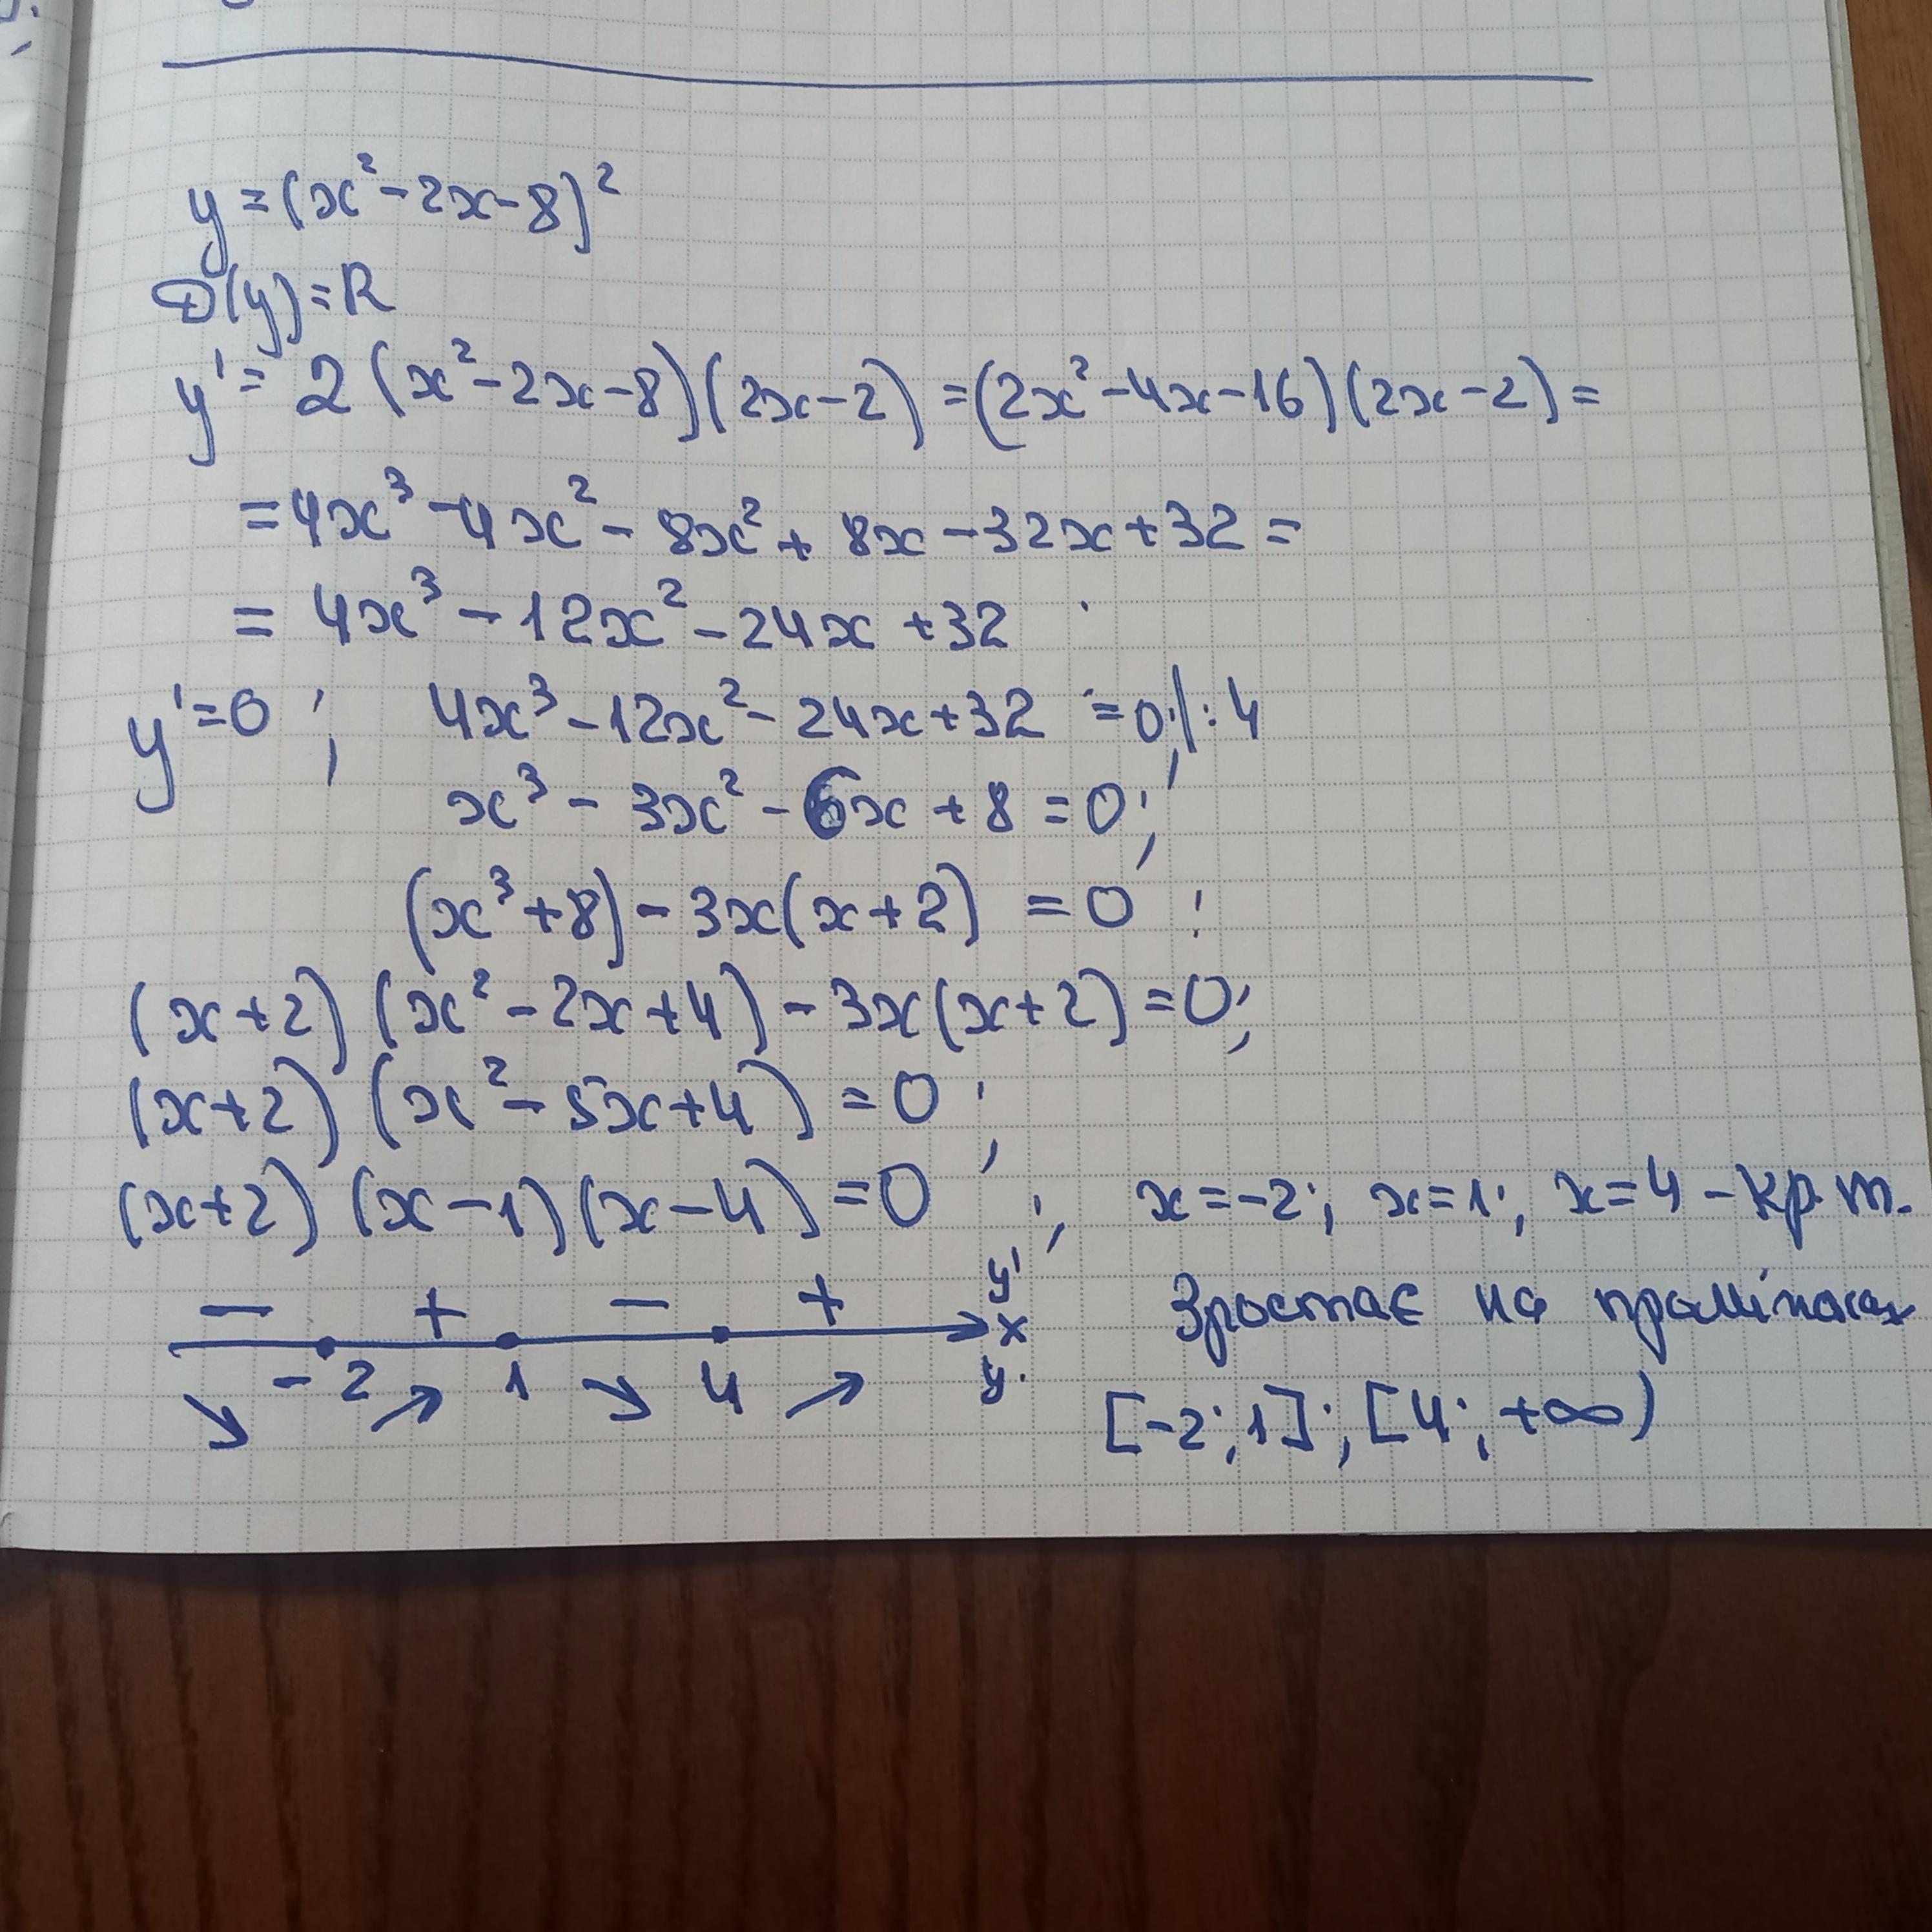 y = (x² - 2x - 8)²
D(y) = R
y' = 2(x² - 2x - 8)(2x - 2) = (2x² - 4x - 16)(2x - 2) =
= 4x³ - 4x² - 8x² + 8x - 32x + 32 =
= 4x³ - 12x² - 24x + 32
y' = 0; 4x³ - 12x² - 24x + 32 = 0; |: 4
x³ - 3x² - 6x + 8 = 0;
(x³ + 8) - 3x(x + 2) = 0;
(x + 2)(x² - 2x + 4) - 3x(x + 2) = 0;
(x + 2)(x² - 5x + 4) = 0;
(x + 2)(x - 1)(x - 4) = 0; x = -2; x = 1; x = 4 - кр. т.
- + - + y'
x
-2 1 4 y
↘ ↗ ↘ ↗
Зростає на проміжках
[-2; 1]; [4; +∞)